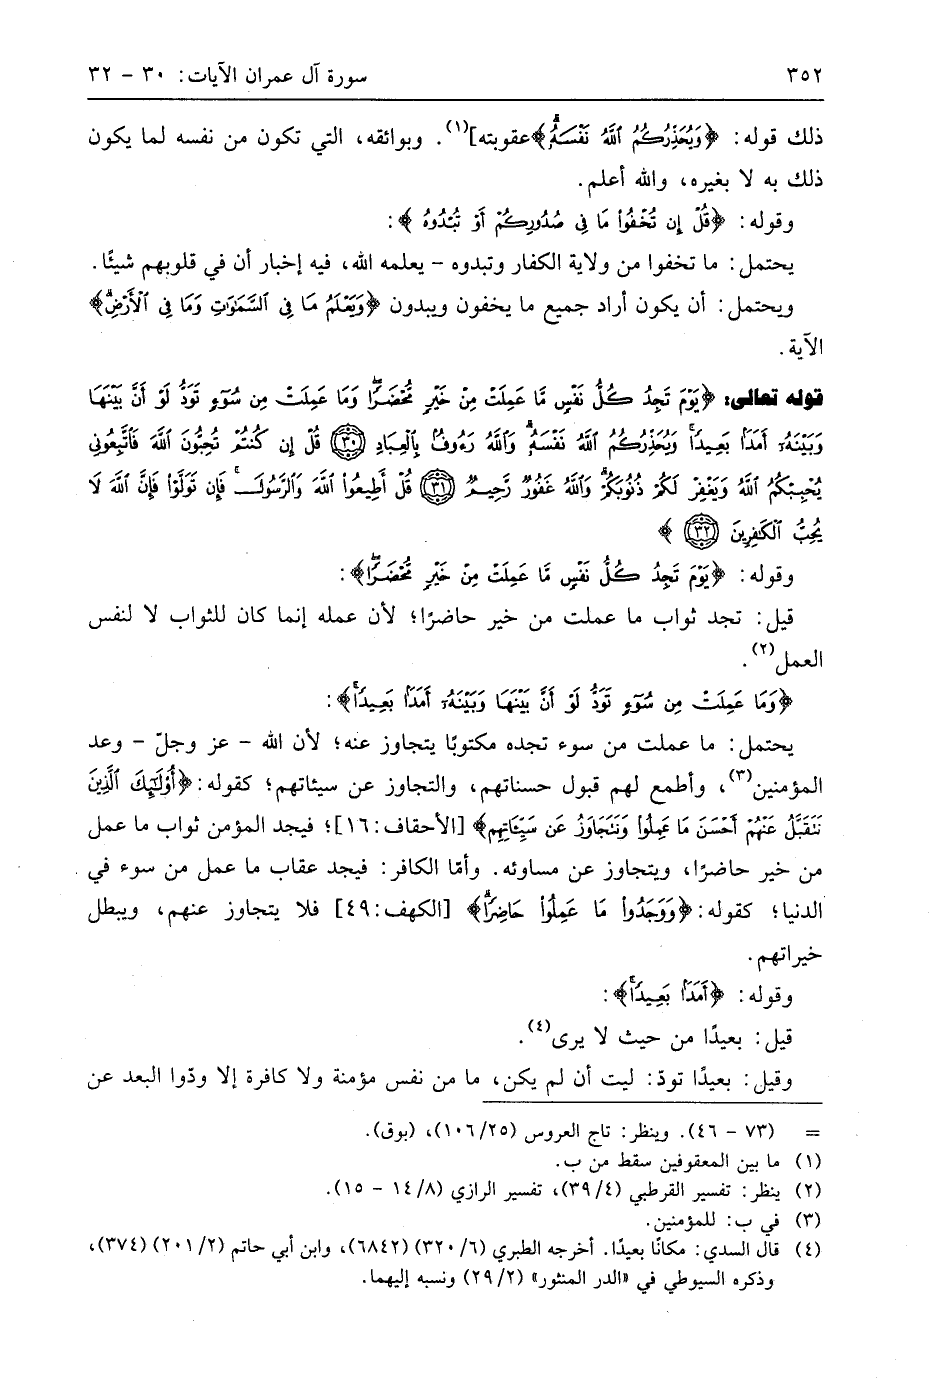 ٣٥٢ سورة آل عمران الآيات: ٣٠ – ٣٢
ذلك قوله: ﴿وَيُحَذِّرُكُمُ ٱللَّهُ نَفْسَهُۥۗ﴾عقوبته](١). وبوائقه، التي تكون من نفسه لما يكون
ذلك به لا بغيره، والله أعلم.
وقوله: ﴿قُلْ إِن تُخْفُوا۟ مَا فِى صُدُورِكُمْ أَوْ تُبْدُوهُ﴾:
يحتمل: ما تخفوا من ولاية الكفار وتبدوه – يعلمه الله، فيه إخبار أن في قلوبهم شيئًا.
ويحتمل: أن يكون أراد جميع ما يخفون ويبدون ﴿وَيَعْلَمُ مَا فِى ٱلسَّمَٰوَٰتِ وَمَا فِى ٱلْأَرْضِۗ﴾
الآية.
قوله تعالى: ﴿يَوْمَ تَجِدُ كُلُّ نَفْسٍ مَّا عَمِلَتْ مِنْ خَيْرٍ مُّحْضَرًا وَمَا عَمِلَتْ مِن سُوٓءٍ تَوَدُّ لَوْ أَنَّ بَيْنَهَا
وَبَيْنَهُۥٓ أَمَدًۢا بَعِيدًاۗ وَيُحَذِّرُكُمُ ٱللَّهُ نَفْسَهُۥۗ وَٱللَّهُ رَءُوفٌۢ بِٱلْعِبَادِ ٣٠ قُلْ إِن كُنتُمْ تُحِبُّونَ ٱللَّهَ فَٱتَّبِعُونِى
يُحْبِبْكُمُ ٱللَّهُ وَيَغْفِرْ لَكُمْ ذُنُوبَكُمْۗ وَٱللَّهُ غَفُورٌ رَّحِيمٌ ٣١ قُلْ أَطِيعُوا۟ ٱللَّهَ وَٱلرَّسُولَۖ فَإِن تَوَلَّوْا۟ فَإِنَّ ٱللَّهَ لَا
يُحِبُّ ٱلْكَٰفِرِينَ ٣٢﴾
وقوله: ﴿يَوْمَ تَجِدُ كُلُّ نَفْسٍ مَّا عَمِلَتْ مِنْ خَيْرٍ مُّحْضَرًا﴾:
قيل: تجد ثواب ما عملت من خير حاضرًا؛ لأن عمله إنما كان للثواب لا لنفس
العمل(٢).
﴿وَمَا عَمِلَتْ مِن سُوٓءٍ تَوَدُّ لَوْ أَنَّ بَيْنَهَا وَبَيْنَهُۥٓ أَمَدًۢا بَعِيدًاۗ﴾:
يحتمل: ما عملت من سوء تجده مكتوبًا يتجاوز عنه؛ لأن الله – عز وجلّ – وعد
المؤمنين(٣)، وأطمع لهم قبول حسناتهم، والتجاوز عن سيئاتهم؛ كقوله: ﴿أُو۟لَٰٓئِكَ ٱلَّذِينَ
نَتَقَبَّلُ عَنْهُمْ أَحْسَنَ مَا عَمِلُوا۟ وَنَتَجَاوَزُ عَن سَيِّـَٔاتِهِمْ﴾ [الأحقاف: ١٦]؛ فيجد المؤمن ثواب ما عمل
من خير حاضرًا، ويتجاوز عن مساوئه. وأمّا الكافر: فيجد عقاب ما عمل من سوء في
الدنيا؛ كقوله: ﴿وَوَجَدُوا۟ مَا عَمِلُوا۟ حَاضِرًاۗ﴾ [الكهف: ٤٩] فلا يتجاوز عنهم، ويبطل
خيراتهم.
وقوله: ﴿أَمَدًۢا بَعِيدًاۗ﴾:
قيل: بعيدًا من حيث لا يرى(٤).
وقيل: بعيدًا تودّ: ليت أن لم يكن، ما من نفس مؤمنة ولا كافرة إلا ودّوا البعد عن
= (٧٣ – ٤٦). وينظر: تاج العروس (١٠٦/٢٥)، (بوق).
(١) ما بين المعقوفين سقط من ب.
(٢) ينظر: تفسير القرطبي (٣٩/٤)، تفسير الرازي (١٤/٨ – ١٥).
(٣) في ب: للمؤمنين.
(٤) قال السدي: مكانًا بعيدًا. أخرجه الطبري (٣٢٠/٦) (٦٨٤٢)، وابن أبي حاتم (٢٠١/٢) (٣٧٤)،
وذكره السيوطي في «الدر المنثور» (٢٩/٢) ونسبه إليهما.